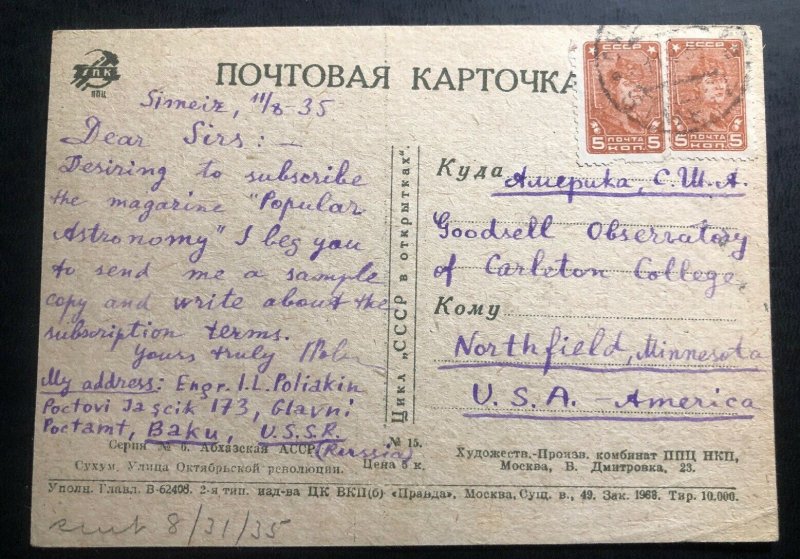 ППК
ППЦ
ПОЧТОВАЯ КАРТОЧКА
СССР
5 ПОЧТА 5
КОП.
СССР
5 ПОЧТА 5
КОП.
Simeiz, 11/8-35
Dear Sirs: —
Desiring to subscribe
the magazine "Popular
Astronomy" I beg you
to send me a sample
copy and write about the
subscription terms.
Yours truly
My address: Engr. I.L. Poliakin
Poctovi Jaşcik 173, Glavni
Poctamt, Baku, U.S.S.R.
(Russia)
Цикл „СССР в открытках“.
Куда Америка, С.Ш.А.
Goodsell Observatory
of Carleton College,
Кому
Northfield, Minnesota
U.S.A. - America
Серия № 6. Абхазская АССР
№ 15.
Сухум. Улица Октябрьской революции.
Цена 5 к.
Художеств.-Произв. комбинат ППЦ НКП,
Москва, Б. Дмитровка, 23.
Уполн. Главл. В-62408. 2-я тип. изд-ва ЦК ВКП(б) «Правда», Москва, Сущ. в., 49. Зак. 1968. Тир. 10.000.
8/31/35